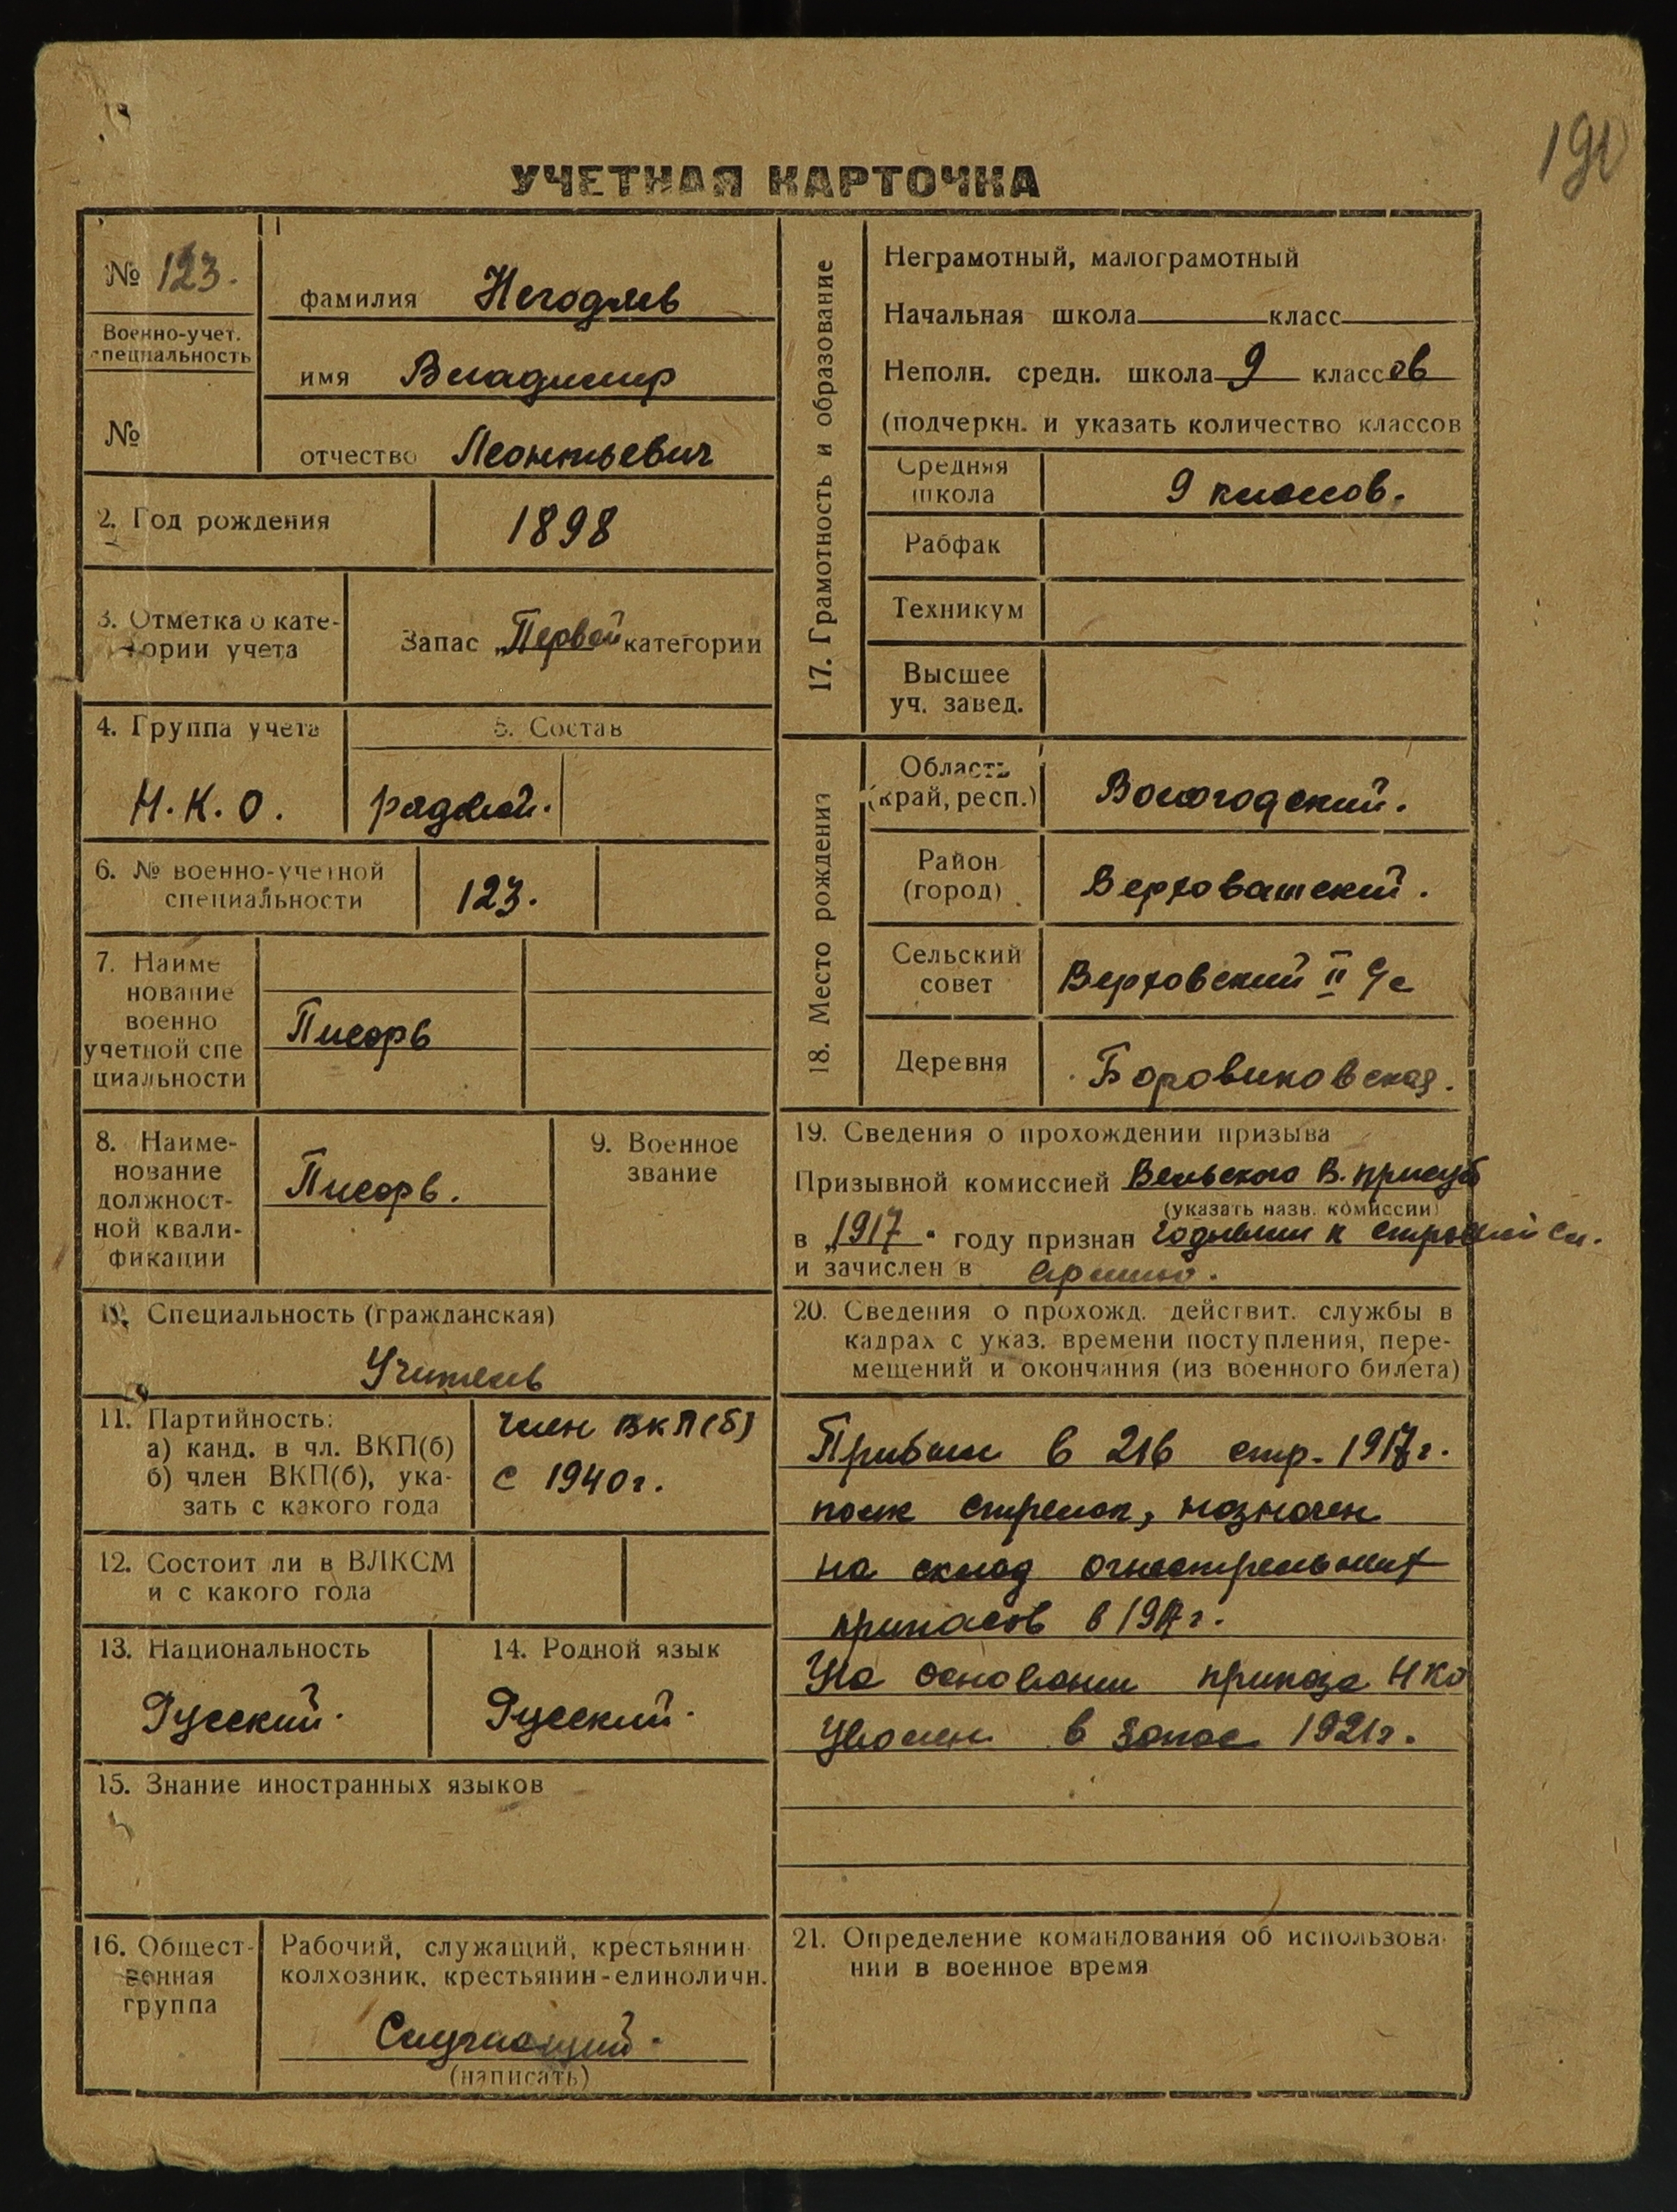 190
УЧЕТНАЯ КАРТОЧКА
№ 123.
Военно-учет.
специальность
№
1
фамилия Негодяев
имя Владимир
отчество Леонтьевич
2. Год рождения 1898
3. Отметка о кате-
гории учета
Запас „Первой категории
4. Группа учета
Н.К.О.
5. Состав
рядовой.
6. № военно-учетной
специальности
123.
7. Наиме
нование
военно
учетной спе
циальности
Писарь
8. Наиме-
нование
должност-
ной квали-
фикации
Писарь.
9. Военное
звание
10. Специальность (гражданская)
Учитель
11. Партийность:
а) канд. в чл. ВКП(б)
б) член ВКП(б), ука-
зать с какого года
член ВКП(б)
с 1940г.
12. Состоит ли в ВЛКСМ
и с какого года
13. Национальность
Русский.
14. Родной язык
Русский.
15. Знание иностранных языков
16. Общест-
венная
группа
Рабочий, служащий, крестьянин-
колхозник, крестьянин-единоличн.
Служащий.
(написать)
17. Грамотность и образование
Неграмотный, малограмотный
Начальная школа класс
Неполн. средн. школа 9 классов
(подчеркн. и указать количество классов
Средняя
школа
9 классов.
Рабфак
Техникум
Высшее
уч. завед.
18. Место рождения
Область
(край, респ.)
Вологодский.
Район
(город)
Верховажский.
Сельский
совет
Верховский II с/с
Деревня
Боровиковская.
19. Сведения о прохождении призыва
Призывной комиссией Вельского В.
(указать назв. комиссии)
в „1917" году признан годным к строевой сл.
и зачислен в армию.
20. Сведения о прохожд. действит. службы в
кадрах с указ. времени поступления, пере-
мещений и окончания (из военного билета)
Прибыл в 216 стр. 1917г.
полк стрелок, назначен
на склад огнестрельных
припасов в 1917г.
На основании приказа НКО
Уволен в запас 1921г.
21. Определение командования об использова-
нии в военное время